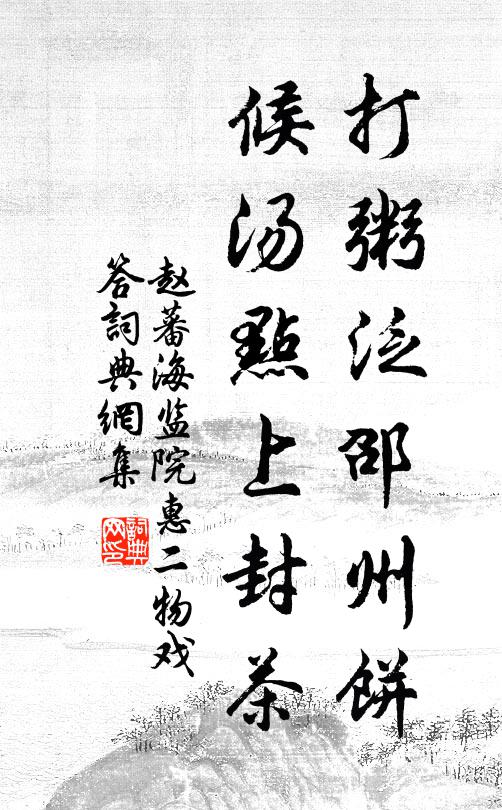 打粥泛邵州餅
候汤點上封茶
赵蕃海监院惠二物戏
答詞典網集
詞典网印